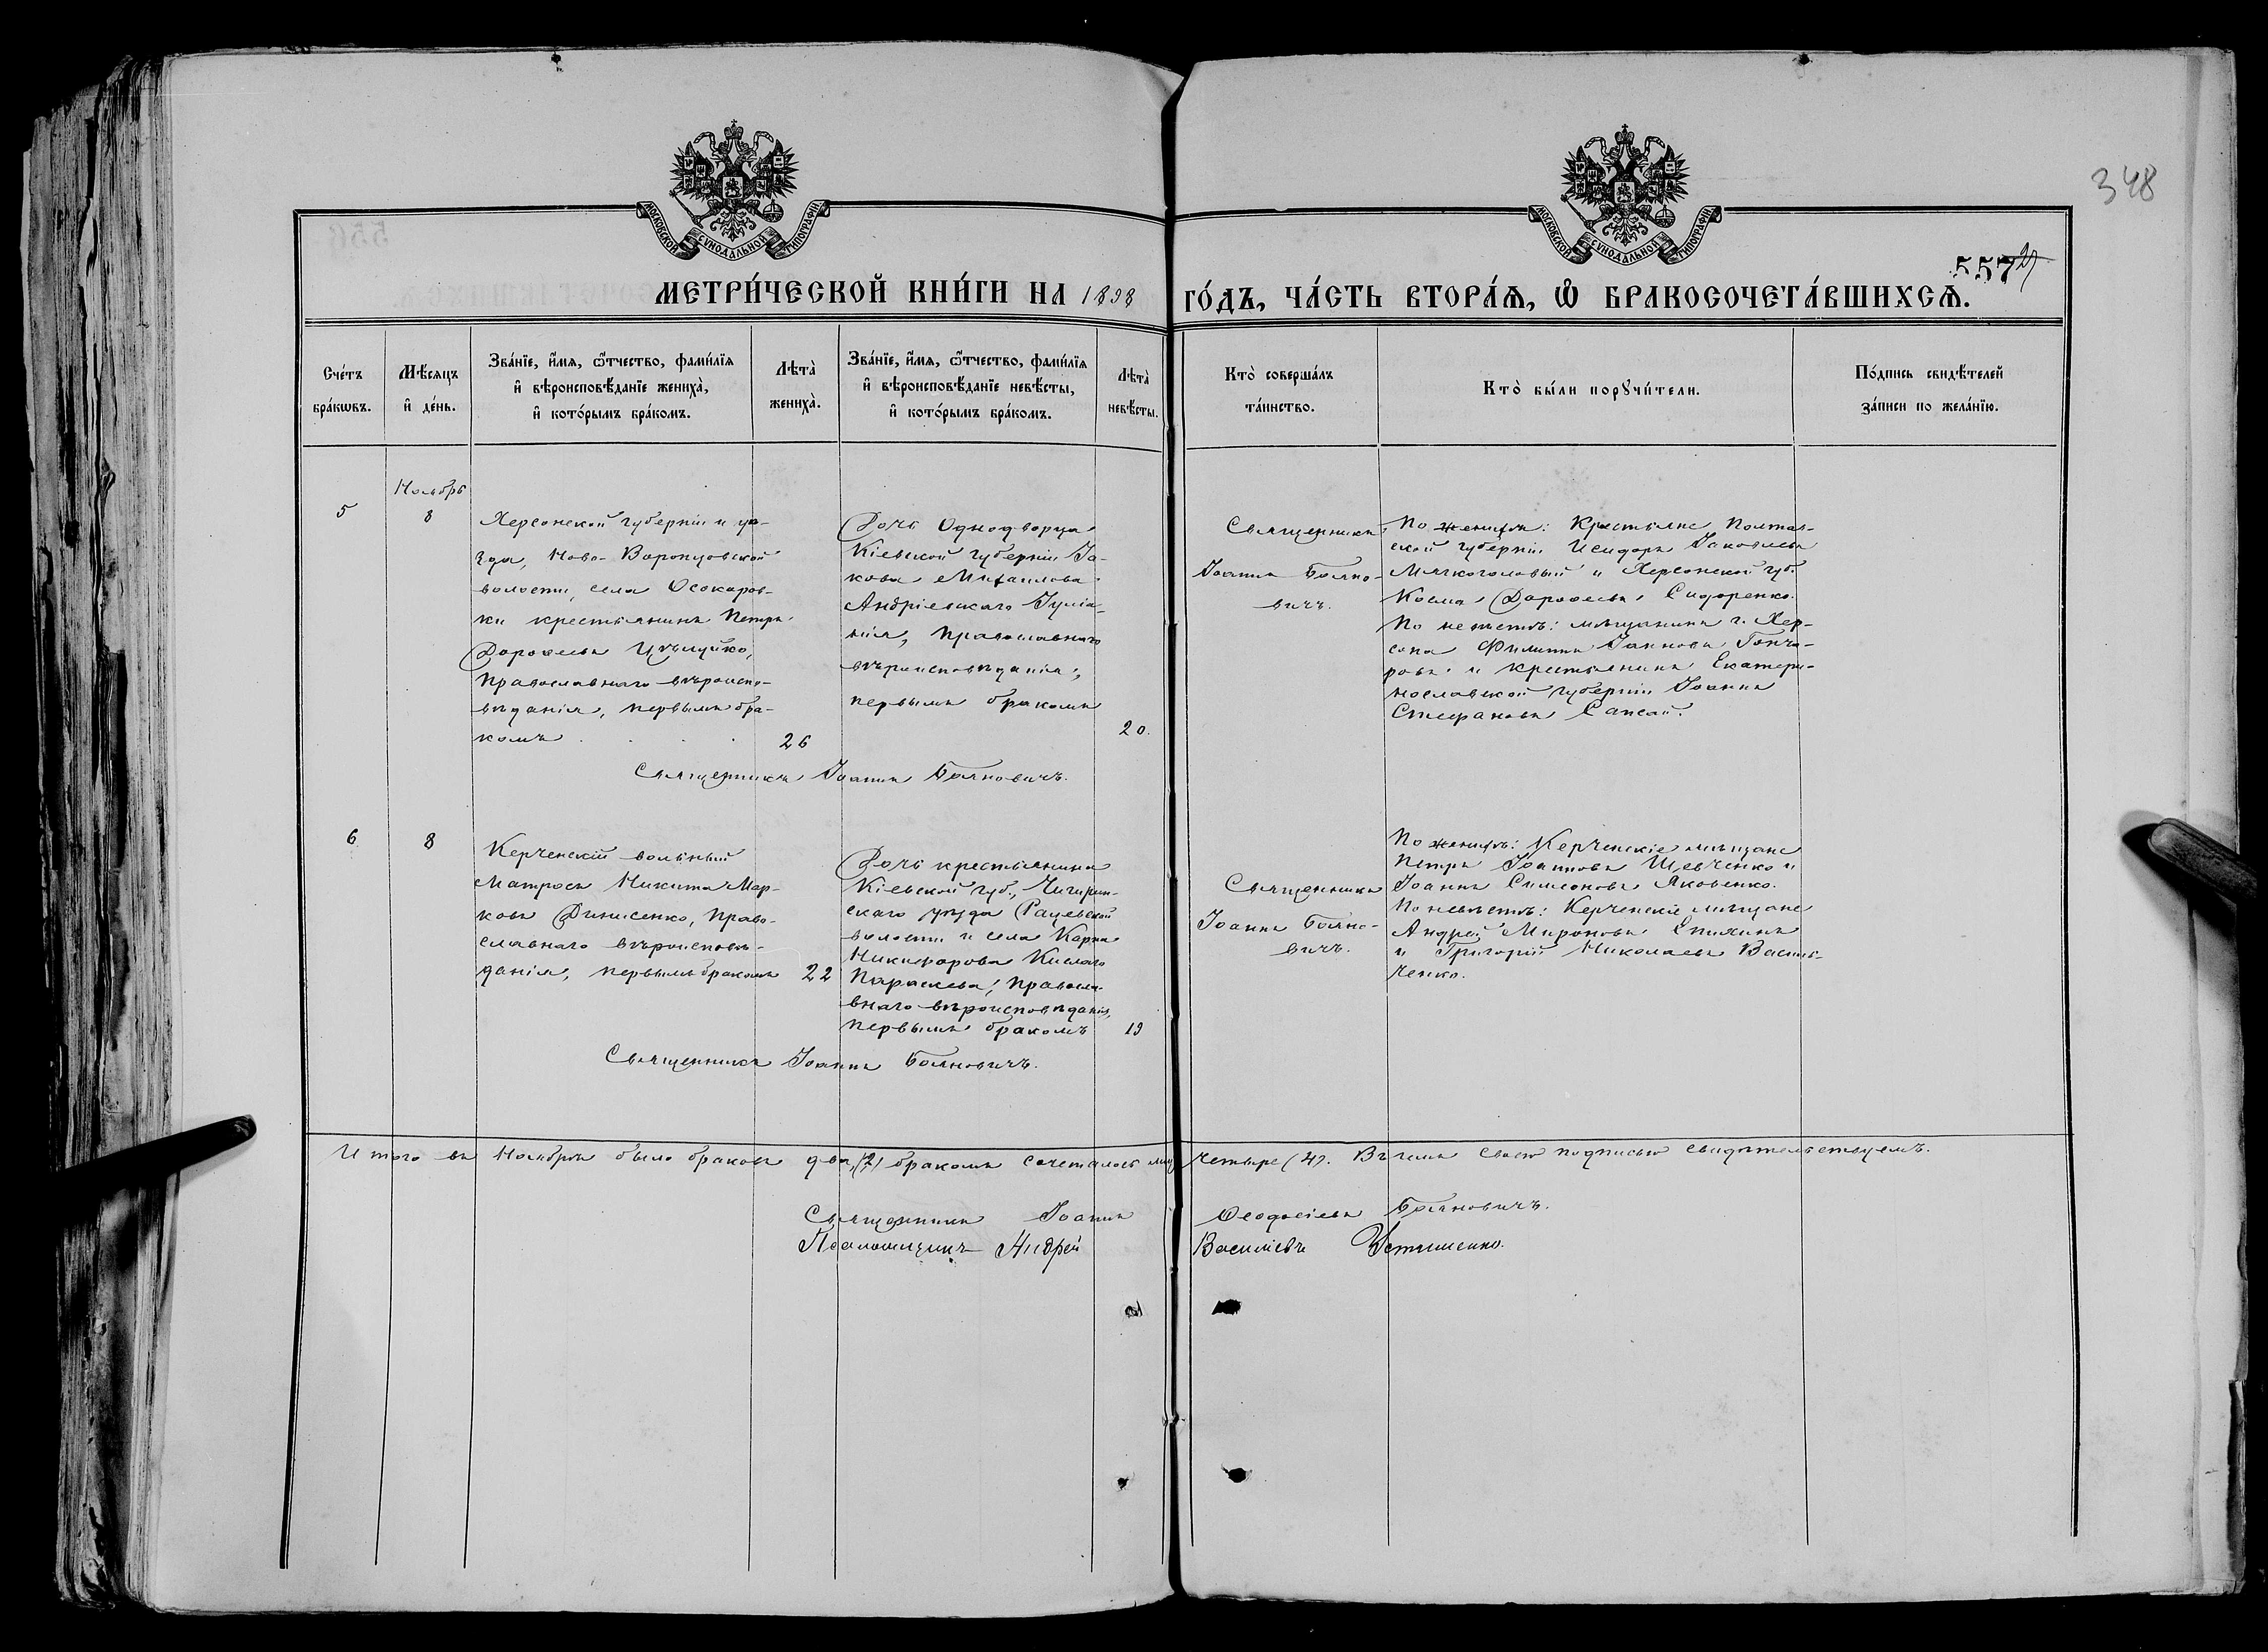 348
557
МОСКОВСКОЙ СѴНОДАЛЬНОЙ ТИПОГРАФІИ
МОСКОВСКОЙ СѴНОДАЛЬНОЙ ТИПОГРАФІИ
МЕТРИ́ЧЕСКОЙ КНИ́ГИ НА 1898 ГО́ДЪ, ЧА́СТЬ ВТОРА́Ѧ, Ѽ БРАКОСОЧЕТА́ВШИХСѦ.
Сче́тъ бра́кѡвъ.
Мѣ́сяцъ и҆ де́нь.
Зва́нїе, и҆́мѧ, ѻ҆́тчество, фами́лїѧ
и҆ вѣроисповѣ́данїе жениха̀,
и҆ кото́рымъ бра́комъ.
Лѣта̀ жениха̀.
Зва́нїе, и҆́мѧ, ѻ҆́тчество, фами́лїѧ
и҆ вѣроисповѣ́данїе невѣ́сты,
и҆ кото́рымъ бра́комъ.
Лѣта̀ невѣ́сты.
Кто̀ соверша́лъ та́инство.
Кто̀ бы́ли порꙋчи́тели.
По́дпись свидѣ́телей
за́писи по жела́нїю.
Ноябрь
5
8
Херсонской губерніи и уѣ-
зда, Ново-Воронцовской
волости, села Осокоров-
ки крестьянинъ Петръ
Дороѳеевъ
православнаго вѣроиспо-
вѣданія, первымъ бра-
комъ
26
Дочь Однодворца
Кіевской губерніи Іа-
кова Михаилова
Андріевскаго Іуліа-
нія, православнаго
вѣроисповѣданія,
первымъ бракомъ
20.
Священникъ
Іоаннъ Бояно-
вичъ.
По женихѣ: Крестьяне Полтав-
ской губерніи Исидоръ Іаковлевъ
Мягкоголовый и Херсонской губ.
Косма Дороѳеевъ Сидоренко.
По невѣстѣ: мѣщанинъ г. Хер-
сона Филиппъ Іанновъ Гонча-
ровъ и крестьянинъ Екатери-
нославской губерніи Іоаннъ
Стефановъ Сапсай.
Священникъ Іоаннъ Бояновичъ.
6
8
Керченскій вольный
матросъ Никита Мар-
ковъ Динисенко, право-
славнаго вѣроисповѣ-
данія, первымъ бракомъ
22
Дочь крестьянина
Кіевской губ., Чигирин-
скаго уѣзда Рацевской
волости и села Карпа
Никифорова Кислаго
Параскева, правосла-
внаго вѣроисповѣданія,
первымъ бракомъ
19
Священникъ
Іоаннъ Бояно-
вичъ.
По женихѣ: Керченскіе мѣщане
Петръ Іоанновъ Шевченко и
Іоаннъ Симеоновъ Яковенко.
По невѣстѣ: Керченскіе мѣщане
Андрей Мироновъ Епихинъ
и Григорій Николаевъ Василь-
ченко.
Священникъ Іоаннъ Бояновичъ.
Итого въ Ноябрѣ было браковъ два (2) бракомъ сочеталось лицъ четыре (4). Въ чемъ своею подписью свидѣтельствуемъ.
Священникъ Іоаннъ Ѳеодосіевъ Бояновичъ.
Псаломщикъ Андрей Василіевъ Устименко.